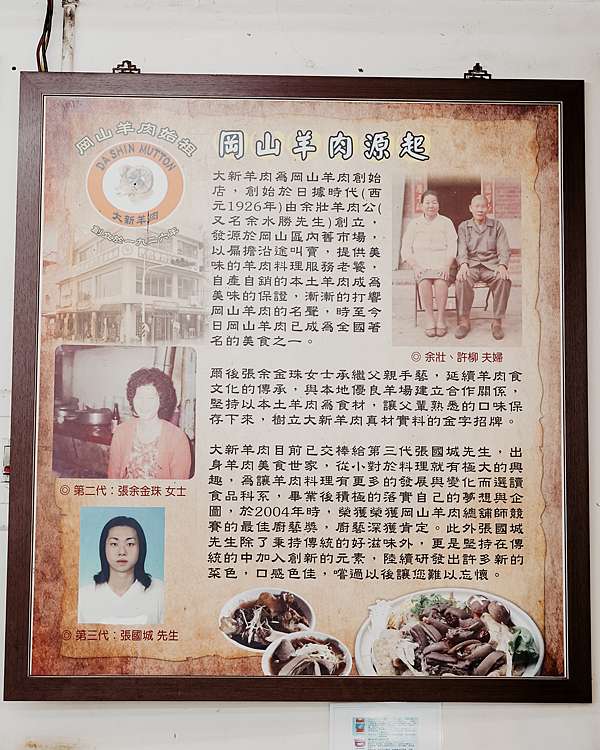 岡山羊肉始祖
DA SHIN MUTTON
大新羊肉
創立於一九二六年
岡山羊肉源起
大新羊肉為岡山羊肉創始
店，創始於日據時代(西
元1926年)由余壯羊肉公(
又名余水勝先生)創立，
發源於岡山區內舊市場，
以扁擔沿途叫賣，提供美
味的羊肉料理服務老饕，
自產自銷的本土羊肉成為
美味的保證，漸漸的打響
岡山羊肉的名聲，時至今
日岡山羊肉已成為全國著
名的美食之一。
◎ 余壯、許柳 夫婦
爾後張余金珠女士承繼父親手藝，延續羊肉食
文化的傳承，與本地優良羊場建立合作關係，
堅持以本土羊肉為食材，讓父輩熟悉的口味保
存下來，樹立大新羊肉真材實料的金字招牌。
◎ 第二代：張余金珠 女士
大新羊肉目前已交棒給第三代張國城先生，出
身羊肉美食世家，從小對於料理就有極大的興
趣，為讓料理有更多的發展與變化而選讀
食品科系，畢業後積極的落實自己的夢想與企
圖，於2004年時，榮獲榮獲岡山羊肉總舖師競
賽的最佳廚藝獎，廚藝深獲肯定。此外張國城
先生除了秉持傳統的好滋味外，更是堅持在傳
統的中加入創新的元素，陸續研發出許多新的
菜色，口感色佳，嚐過以後讓您難以忘懷。
◎ 第三代：張國城 先生